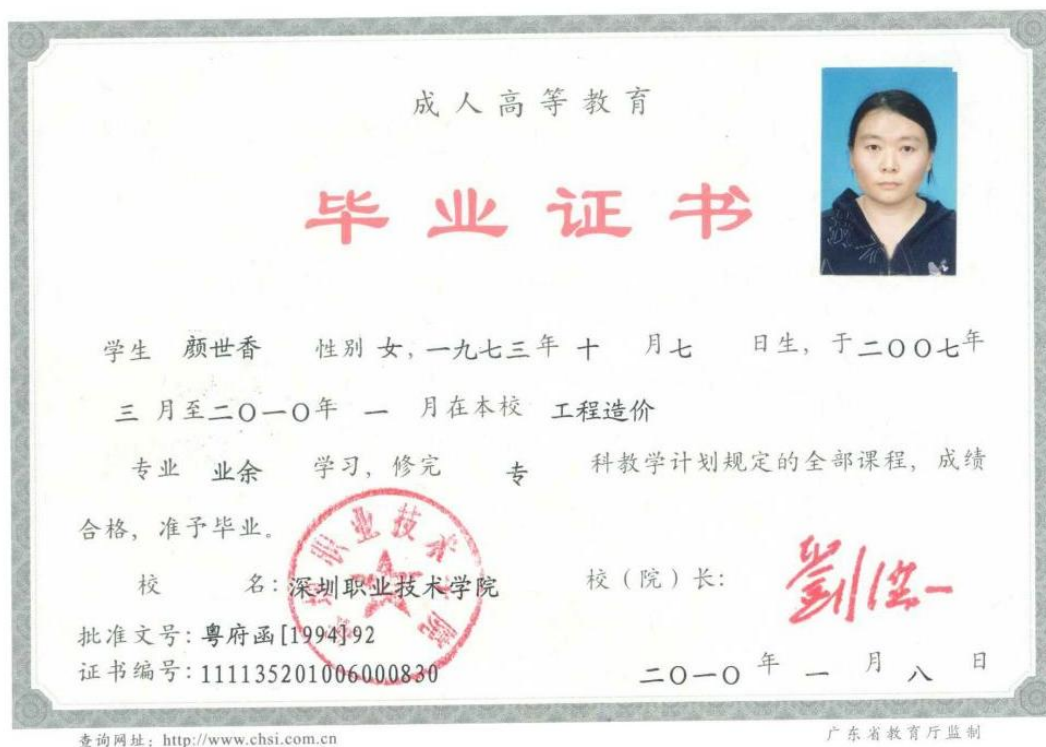 成人高等教育
毕业证书
学生 颜世香 性别 女,一九七三年 十 月七 日生,于二〇〇七年
三 月至二〇一〇年 一 月在本校 工程造价
专业 业余 学习,修完 专 科教学计划规定的全部课程,成绩
合格,准予毕业。
校 名:深圳职业技术学院 校(院)长:
批准文号:粤府函[1994]92
证书编号:111135201006000830
二〇一〇 年 一 月 八 日
查询网址:http://www.chsi.com.cn 广东省教育厅监制